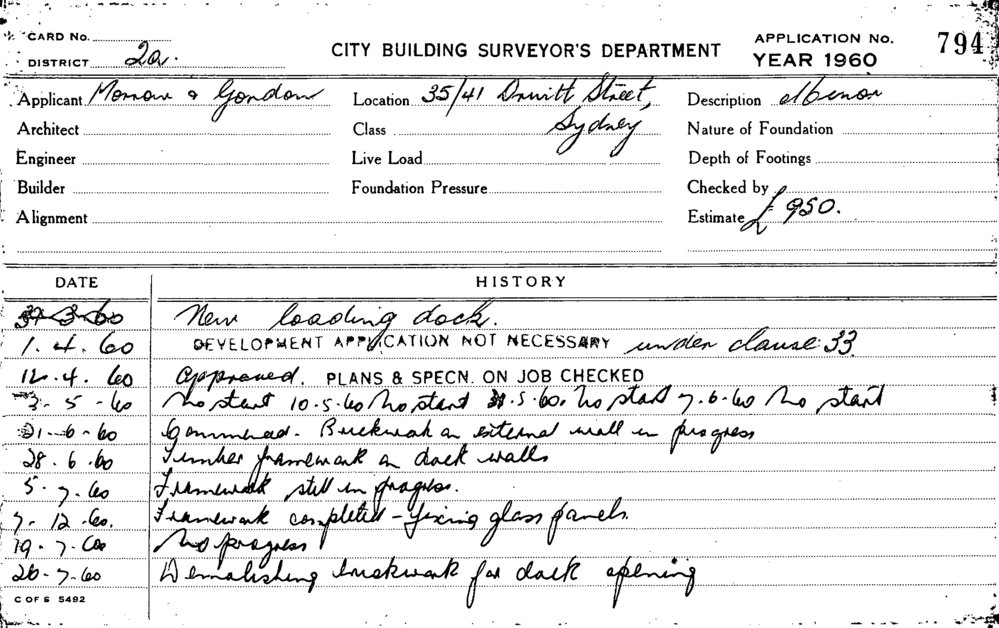 CARD No.
DISTRICT 2a.
CITY BUILDING SURVEYOR'S DEPARTMENT
APPLICATION No. 794
YEAR 1960
Applicant Morrow & Gordon Location 35/41 Druitt Street, Description
Architect Class Sydney Nature of Foundation
Engineer Live Load Depth of Footings
Builder Foundation Pressure Checked by
Alignment Estimate £950.
DATE HISTORY
3-60 New loading dock.
1. 4. 60 DEVELOPMENT APPLICATION NOT NECESSARY under clause 33
12. 4. 60 Approved. PLANS & SPECN. ON JOB CHECKED
3- 5 -60 No start 10.5.60 No start 31.5.60. No start 7.6.60 No start
21-6-60 Commenced. Brickwork on external wall in progress
28. 6. 60 Timber framework on dock walls
5. 7. 60 Framework still in progress.
7- 12 -60. Framework completed - fixing glass panels.
19. 7. 60 No progress
26-7-60 Demolishing brickwork for dock opening
C OF S 5492